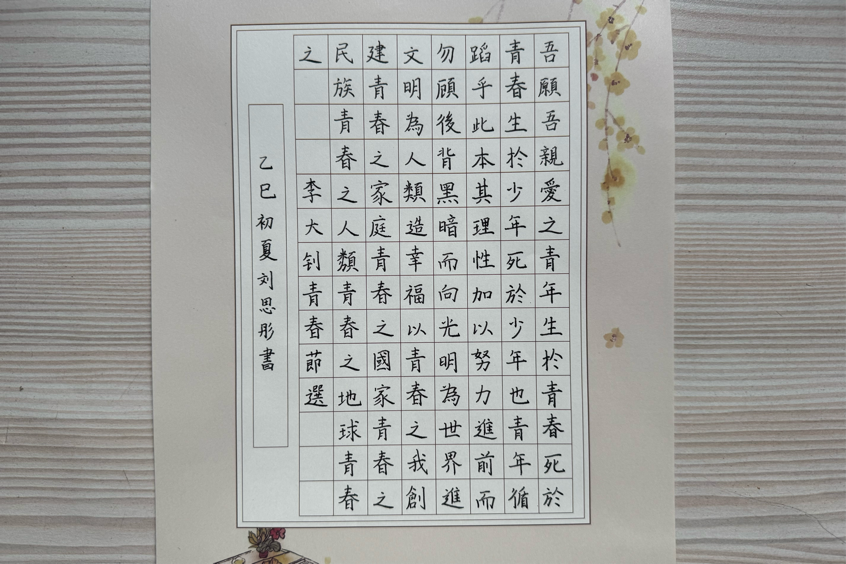 吾願吾親愛之青年生於青春死於
青春生於少年死於少年也青年循
蹈乎此本其理性加以努力進前而
勿顧後背黑暗而向光明為世界進
文明為人類造幸福以青春之我創
建青春之家庭青春之國家青春之
民族青春之人類青春之地球青春
之 李大钊青春節選
乙巳初夏刘思彤書